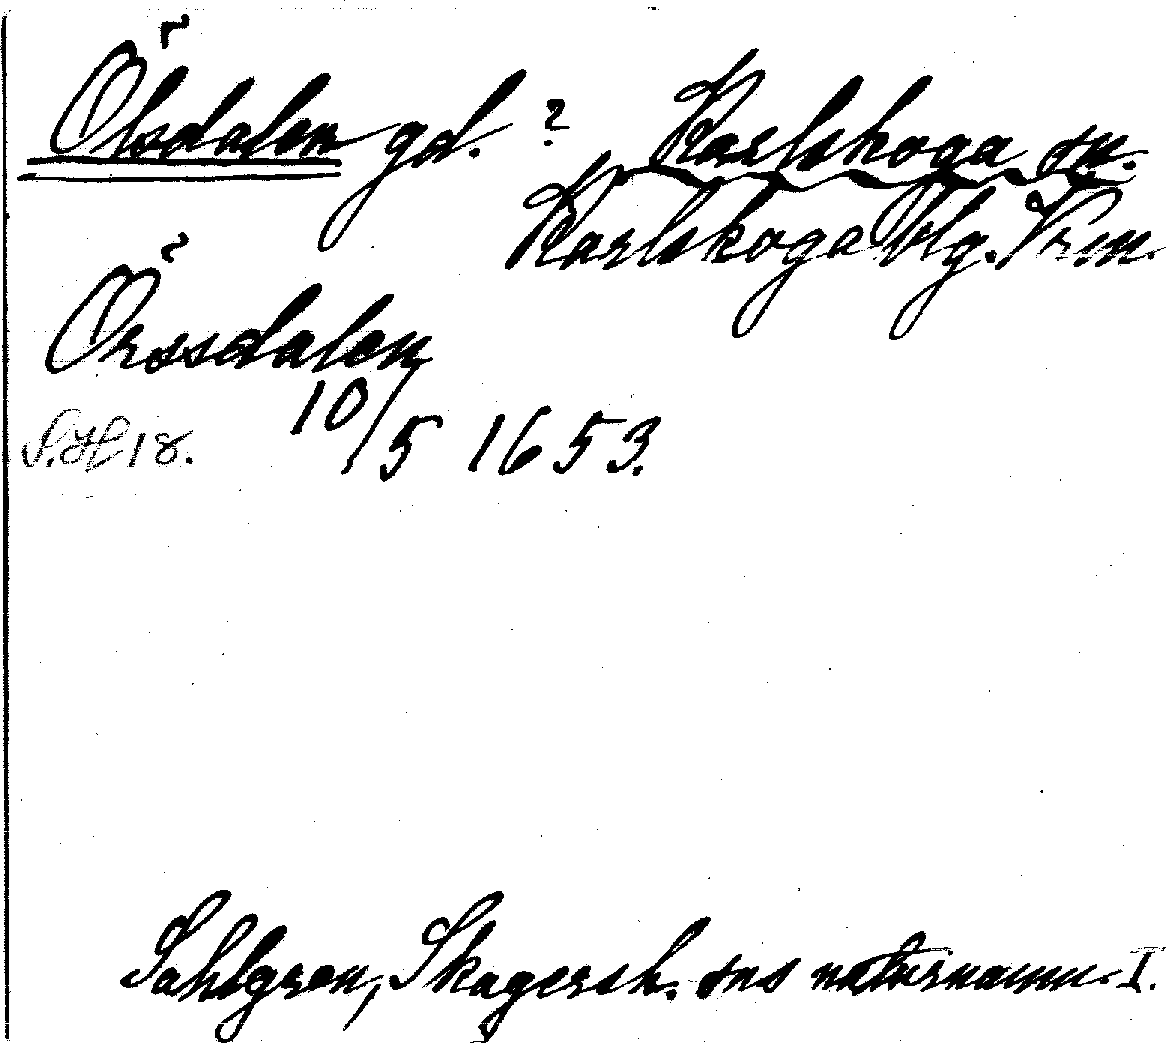 Ölsdalen gd. ? Karlskoga sn.
Karlskoga blg. Vrm.
Örssdalen
10/5 1653.
S. 18.
Sahlgren, Skagersh. sns naturnamn. I.